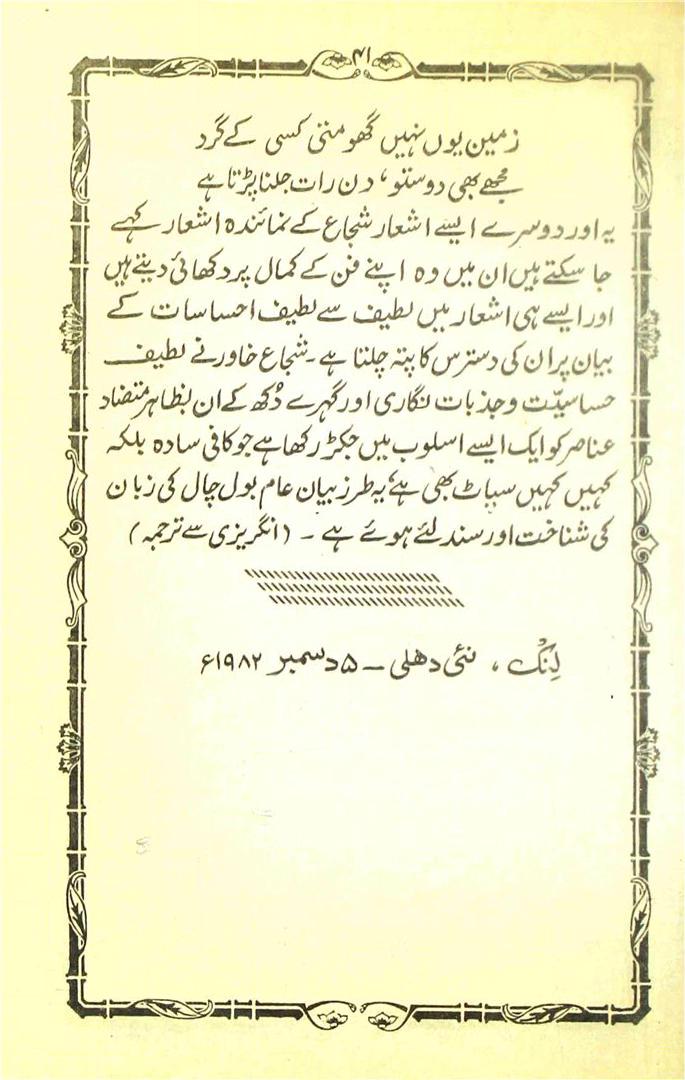 ۴۱
زمین یوں نہیں گھومتی کسی کے گرد
مجھے بھی دوستو، دن رات جلنا پڑتا ہے
یہ اور دوسرے ایسے اشعار شجاع کے نمائندہ اشعار کہے
جا سکتے ہیں ان میں وہ اپنے فن کے کمال پر دکھائی دیتے ہیں
اور ایسے ہی اشعار میں لطیف سے لطیف احساسات کے
بیان پر ان کی دسترس کا پتہ چلتا ہے۔ شجاع خاور نے لطیف
حساسیّت و جذبات نگاری اور گہرے دُکھ کے ان بظاہر متضاد
عناصر کو ایک ایسے اسلوب میں جکڑ رکھا ہے جو کافی سادہ بلکہ
کہیں کہیں سپاٹ بھی ہے، یہ طرز بیان عام بول چال کی زبان
کی شناخت اور سند لئے ہوئے ہے۔ (انگریزی سے ترجمہ)
لِنک، نئی دھلی ـ ۵ دسمبر ۱۹۸۲ء